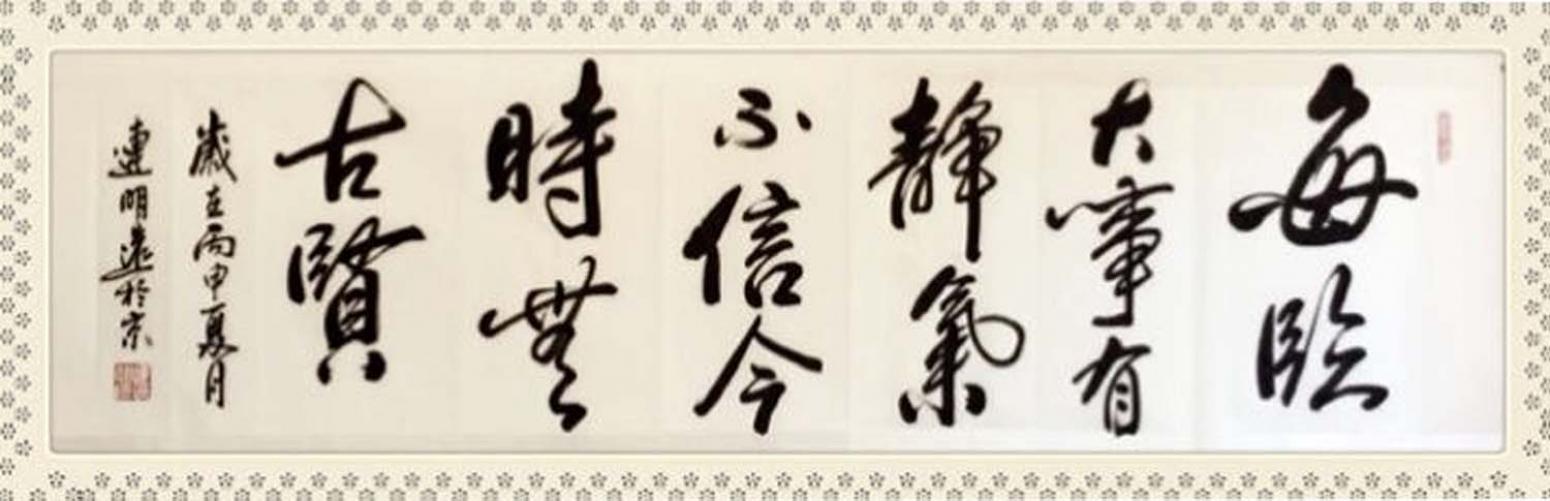 每臨
大事有
靜氣
不信今
時無
古賢
歲在丙申夏月
連明遠於京